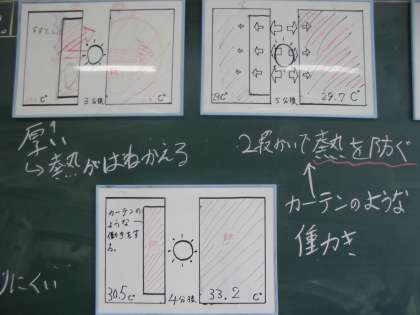 C°
3分後
C°
C°
5分後
29.7 C°
厚い
↳熱がはねかえる
2段かいで熱を防ぐ
↑
カーテンのような
働き
カーテンの
ような
働きをす
る。
30.5 C°
4分後
33.2 C°
りにくい